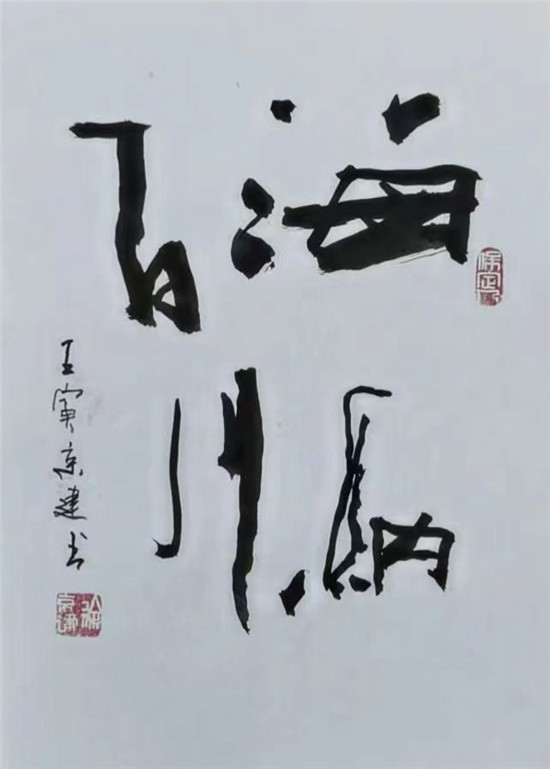 海纳
百川
壬寅京建书